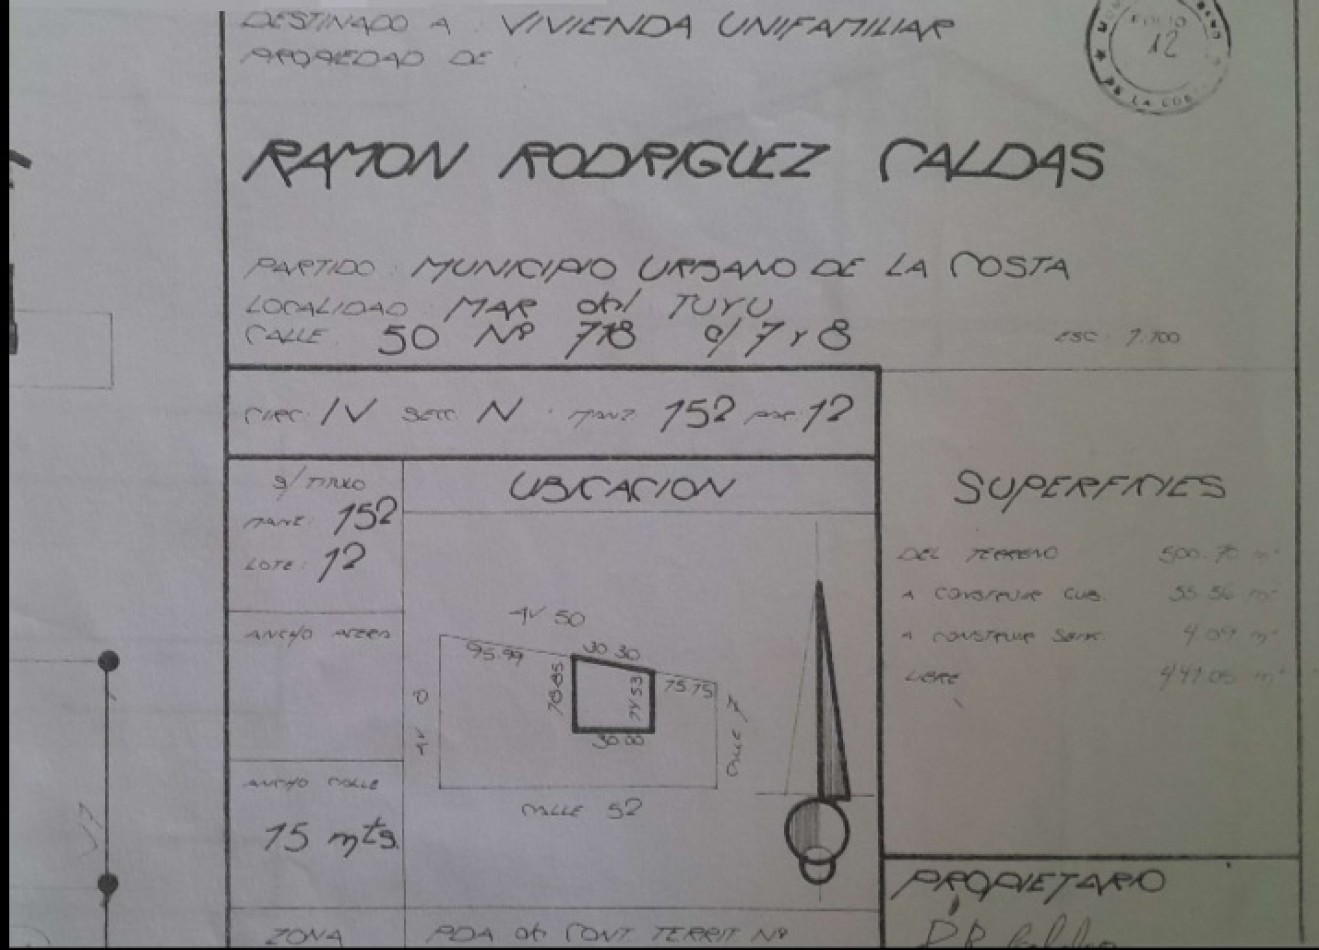 DESTINADO A: VIVIENDA UNIFAMILIAR
PROPIEDAD DE
FOLIO
12
DE LA COS
RAMON RODRIGUEZ CALDAS
PARTIDO: MUNICIPIO URBANO DE LA COSTA
LOCALIDAD MAR del TUYU
CALLE 50 Nº 718 e/ 7 y 8
ESC: 1:100
CIRC: IV SECC. N MANZ. 152 PAR. 12
S/ TITULO
MANZ: 152
LOTE: 12
UBICACION
SUPERFICIES
DEL TERRENO 500.70 m²
A CONSTRUIR CUB. 55.56 m²
A CONSTRUIR SEMIC. 4.09 m²
LIBRE 441.05 m²
ANCHO ACERA
AV 50
95.99
30.30
75.75
AV 8
18.85
14.53
CALLE 7
30.00
CALLE 52
ANCHO CALLE
15 mts.
PROPIETARIO
ZONA
PDA de CONT. TERRIT. Nº